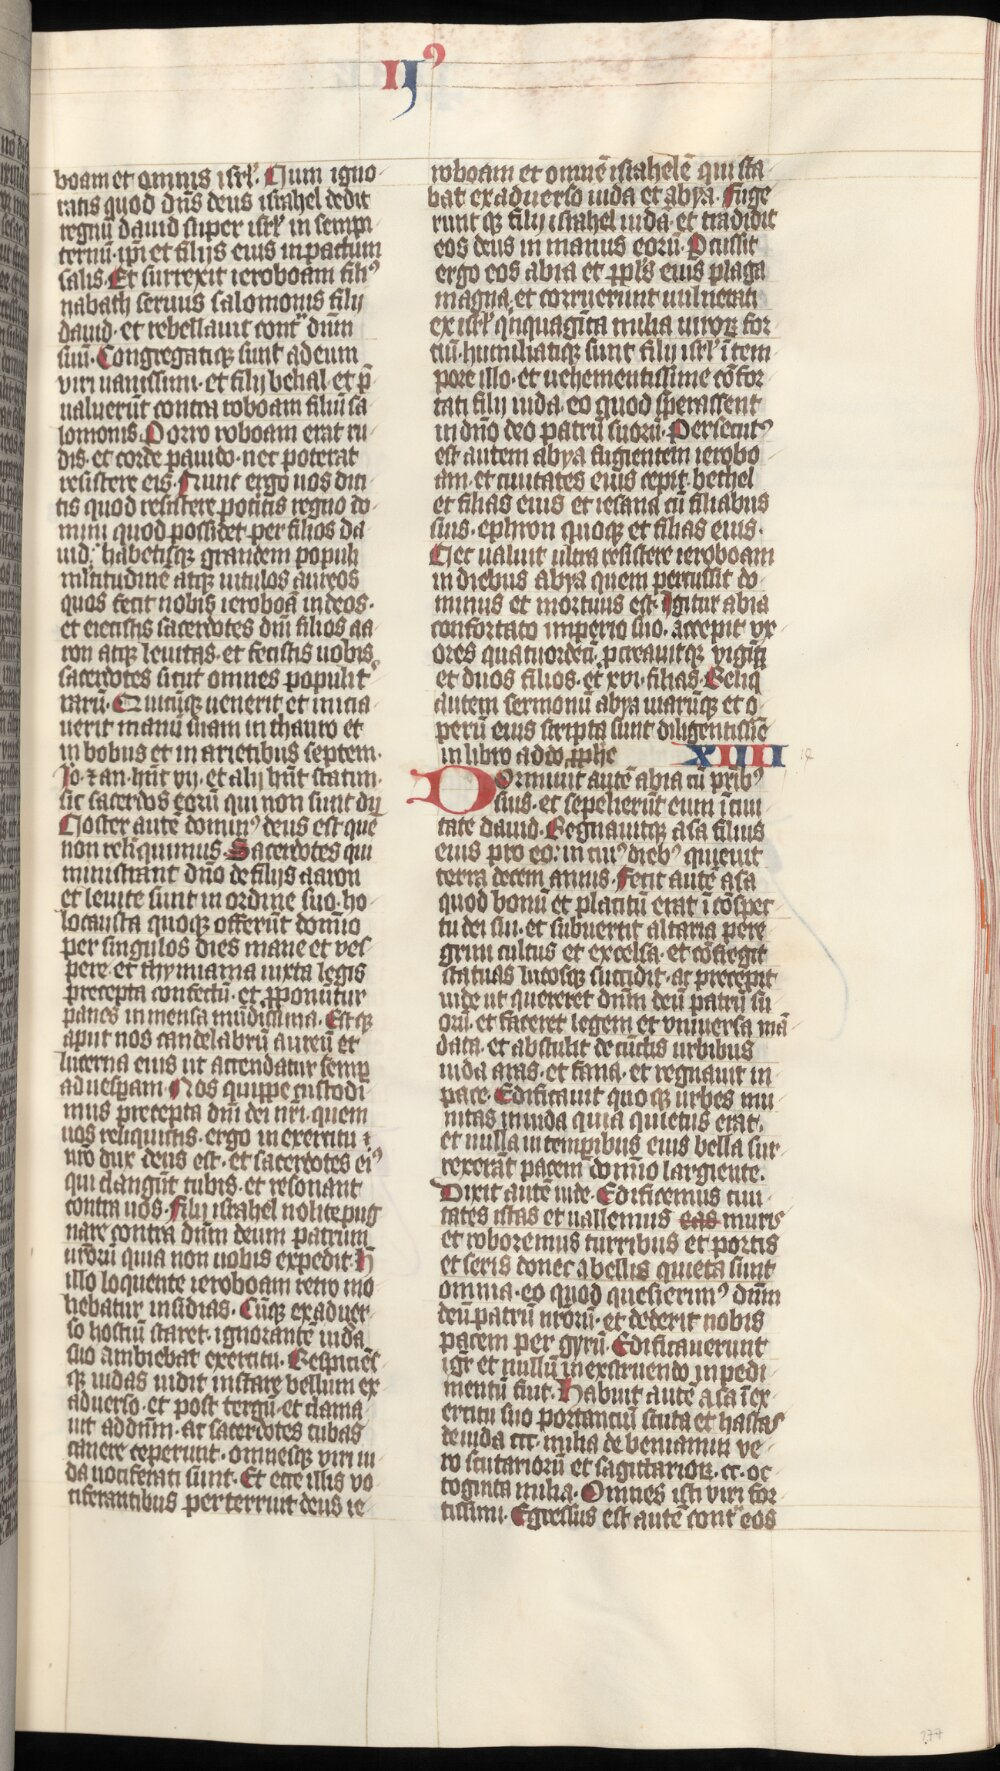 IJꝰ
boam et omnis isrl̕. Num igno
ratis quod dn̄s deus israhel dedit
regnū dauid super isrl̕ in sempi
ternū. ip̄i et filijs eius in pactum
salis. Et surrexit ieroboam filiꝰ
nabath seruus salomonis filij
dauid. et rebellauit contᵃ dn̄m
suū. Congregatiqꝫ sunt ad eum
viri uanissimi. et filij belial. et p̄
ualuerūt contra roboam filiū sa
lomonis. Porro roboam erat ru
dis. et corde pauido. nec poterat
resistere eis. Nunc ergo uos dici
tis quod resistere potitis regno do
mini quod possidet per filios da
uid. habetisqꝫ grandem populi
ml̕titudinē atqꝫ uitulos aureos
quos fecit nobis ieroboā in deos.
et eiecistis sacerdotes dn̄i filios aa
ron atqꝫ leuitas. et fecistis uobis
sacerdotes sicut omnes populi t
rarū. Quicūqꝫ uenerit et inicia
uerit manū suam in thauro et
in bobus et in arietibus septem.
Io. ⁊ an. hn̄t vij. et alij hn̄t statim.
sic sacerdos eorū qui non sunt dij
Noster autē dominꝰ deus est quē
non reliquimus. Sacerdotes qui
ministrant dn̄o de filijs aaron
et leuite sunt in ordine suo. ho
locausta quoqꝫ offerūt domīo
per singulos dies mane et ves
pere. et thymiama iuxta legis
precepta confectū. et ꝓponūtur
panes in mensa mūdissima. Est qꝫ
aput nos candelabrū aureū et
lucerna eius ut accendatur semꝑ
ad uesꝑam. Nos quippe custodi
mus precepta dn̄i dei nr̄i. quem
uos reliquistis. ergo in exercitu ⁊
nr̄o dux deus est. et sacerdotes eiꝰ
qui clangūt tubis. et resonant
contra uos. Filij israhel nolite pug
nare contra dn̄m deum patrum
ur̄orū quia non uobis expedit. H̄
illo loquente ieroboam retro mo
liebatur insidias. Cūqꝫ ex aduer
so hostiū staret. ignorantē iudā
suo ambiebat exercitu. Respiciēs
qꝫ iudas uidit instare bellum ex
aduerso. et post tergū. et clama
uit ad dn̄m. ac sacerdotes tubas
canere ceperunt. omnesqꝫ viri iu
da uociferati sunt. Et ecce illis vo
ciferantibus perterruit deus ie
roboam et omnē israhelē qui sta
bat ex aduerso iuda et abya. Fuge
runt qꝫ filij israhel iudā. et tradidit
eos deus in manus eorū. Percussit
ergo eos abia et ꝓpl̕s eius plaga
magna. et corruerunt uulnerati
ex isrl̕ quinquagīta milia uiroꝝ for
tiū. humiliatiqꝫ sunt filij isrl̕ ī tem
pore illo. et uehementissime cōfor
tati filij iuda. eo quod sperassent
in dn̄o deo patrū suorū. Persecutꝰ
est autem abya fugientem ierobo
am. et ciuitates eius cepit. bethel
et filias eius et iesana cū filiabus
suis. ephron quoqꝫ et filias eius.
Nec ualuit ultra resistere ieroboam
in diebus abya quem percussit do
minus et mortuus est. Igitur abia
confortato imperio suo. accepit vx
ores quatuordecī. ꝓcreauitqꝫ vigīti
et duos filios. et xvi. filias. Reliq̄
autem sermonū abya uiarūqꝫ et o
perū eius scripta sunt diligentissīe
in libro addo ꝓphe XIIII
Dormiuit autē abia cū pr̄ibꝰ
suis. et sepelierūt eum ī ciui
tate dauid. Regnauitqꝫ asa filius
eius pro eo. in cuiꝰ diebꝰ quieuit
terra decem annis. Fecit autē asa
quod bonū et placitū erat ī cōspec
tu dei sui. et subuertit altaria pere
grini cultus et excelsa. et cōfregit
statuas lucosqꝫ succidit. ac precepit
iude ut quereret dn̄m deū patrū su
orū. et faceret legem et vniuersa mā
data. et abstulit de cūctis urbibus
iuda aras. et fana. et regnauit in
pace. Edificauit quoqꝫ urbes mu
nitas in iuda quia quietus erat.
et nulla in temporibus eius bella sur
rexerāt pacem domīo largiente.
Dixit autē iude. Edificemus ciui
tates istas et uallemus eas muris
et roboremus turribus et portis
et seris donec a bellis quieta sunt
omnia. eo quod quesierimꝰ dn̄m
deū patrū nr̄orū. et dederit nobis
pacem per gyrū. Edificauerunt
igr̄ et nullū in exstruendo inpedi
mentū fuit. Habuit autē asa ī ex
ercitu suo portanciū scuta et hastas
de iuda ccc. milia de beniamin ve
ro scutariorū et sagittarioꝝ. cc. oc
toginta milia. Omnes isti viri for
tissimi. Egressus est autē contᵃ eos
277